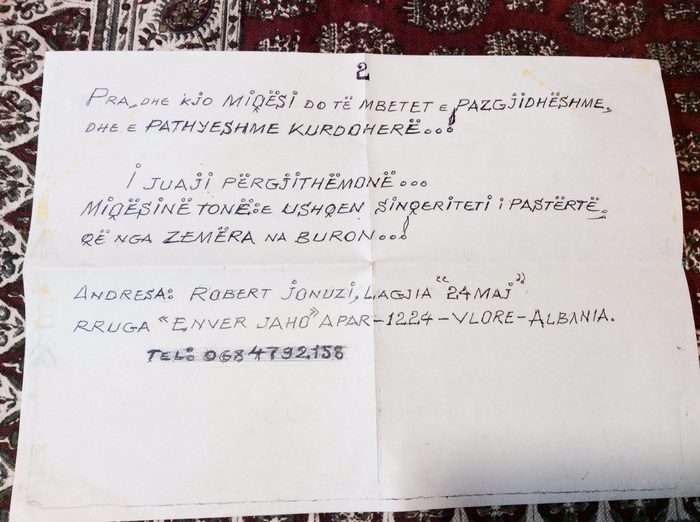 2
PRA, DHE KJO MIQËSI DO TË MBETET E PAZGJIDHËSHME,
DHE E PATHYESHME KURDOHERË...!
I JUAJI PËRGJITHËMONË...
MIQËSINË TONË:E USHQEN SINQERITETI I PASTËRTË,
QË NGA ZEMËRA NA BURON...!
ANDRESA: ROBERT JONUZI, LAGJIA "24 MAJ"
RRUGA "ENVER JAHO" APAR-1224-VLORE-ALBANIA.
TEL: 0684792158